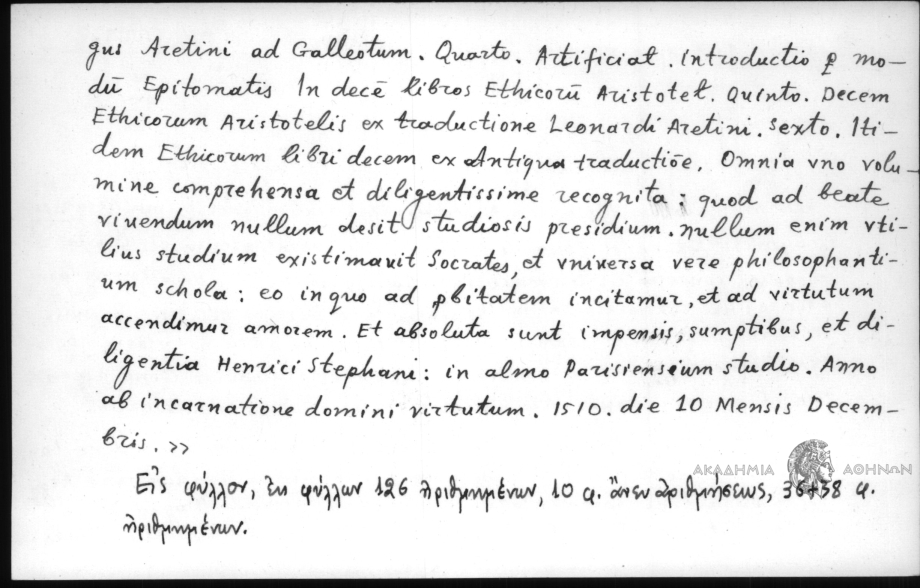 gus Aretini ad Galleotum. Quarto. Artificial. introductio ꝑ mo-
dū Epitomatis In decē libros Ethicorū Aristotel. Quinto. Decem
Ethicorum Aristotelis ex traductione Leonardi Aretini. Sexto. Iti-
dem Ethicorum libri decem ex Antiqua traductiōe. Omnia vno volu-
mine comprehensa et diligentissime recognita: quod ad beate
viuendum nullum desit studiosis presidium. nullum enim vti-
lius studium existimauit Socrates, et vniversa vere philosophanti-
um schola: eo in quo ad ꝓbitatem incitamur, et ad virtutum
accendimur amorem. Et absoluta sunt impensis, sumptibus, et di-
ligentia Henrici Stephani: in almo Parisiensium studio. Anno
ab incarnatione domini virtutum. 1510. die 10 Mensis Decem-
bris. >>
ΑΚΑΔΗΜΙΑ ΑΘΗΝΩΝ
Εἰς φύλλον, ἐκ φύλλων 126 ἠριθμημένων, 10 φ. ἄνευ ἀριθμήσεως, 36+38 φ.
ἠριθμημένων.